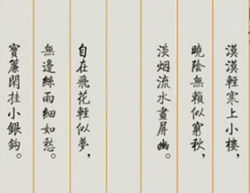 漠漠輕寒上小樓，
曉陰無賴似窮秋，
淡烟流水畫屏幽。
自在飛花輕似夢，
無邊絲雨細如愁。
寶簾閑挂小銀鈎。